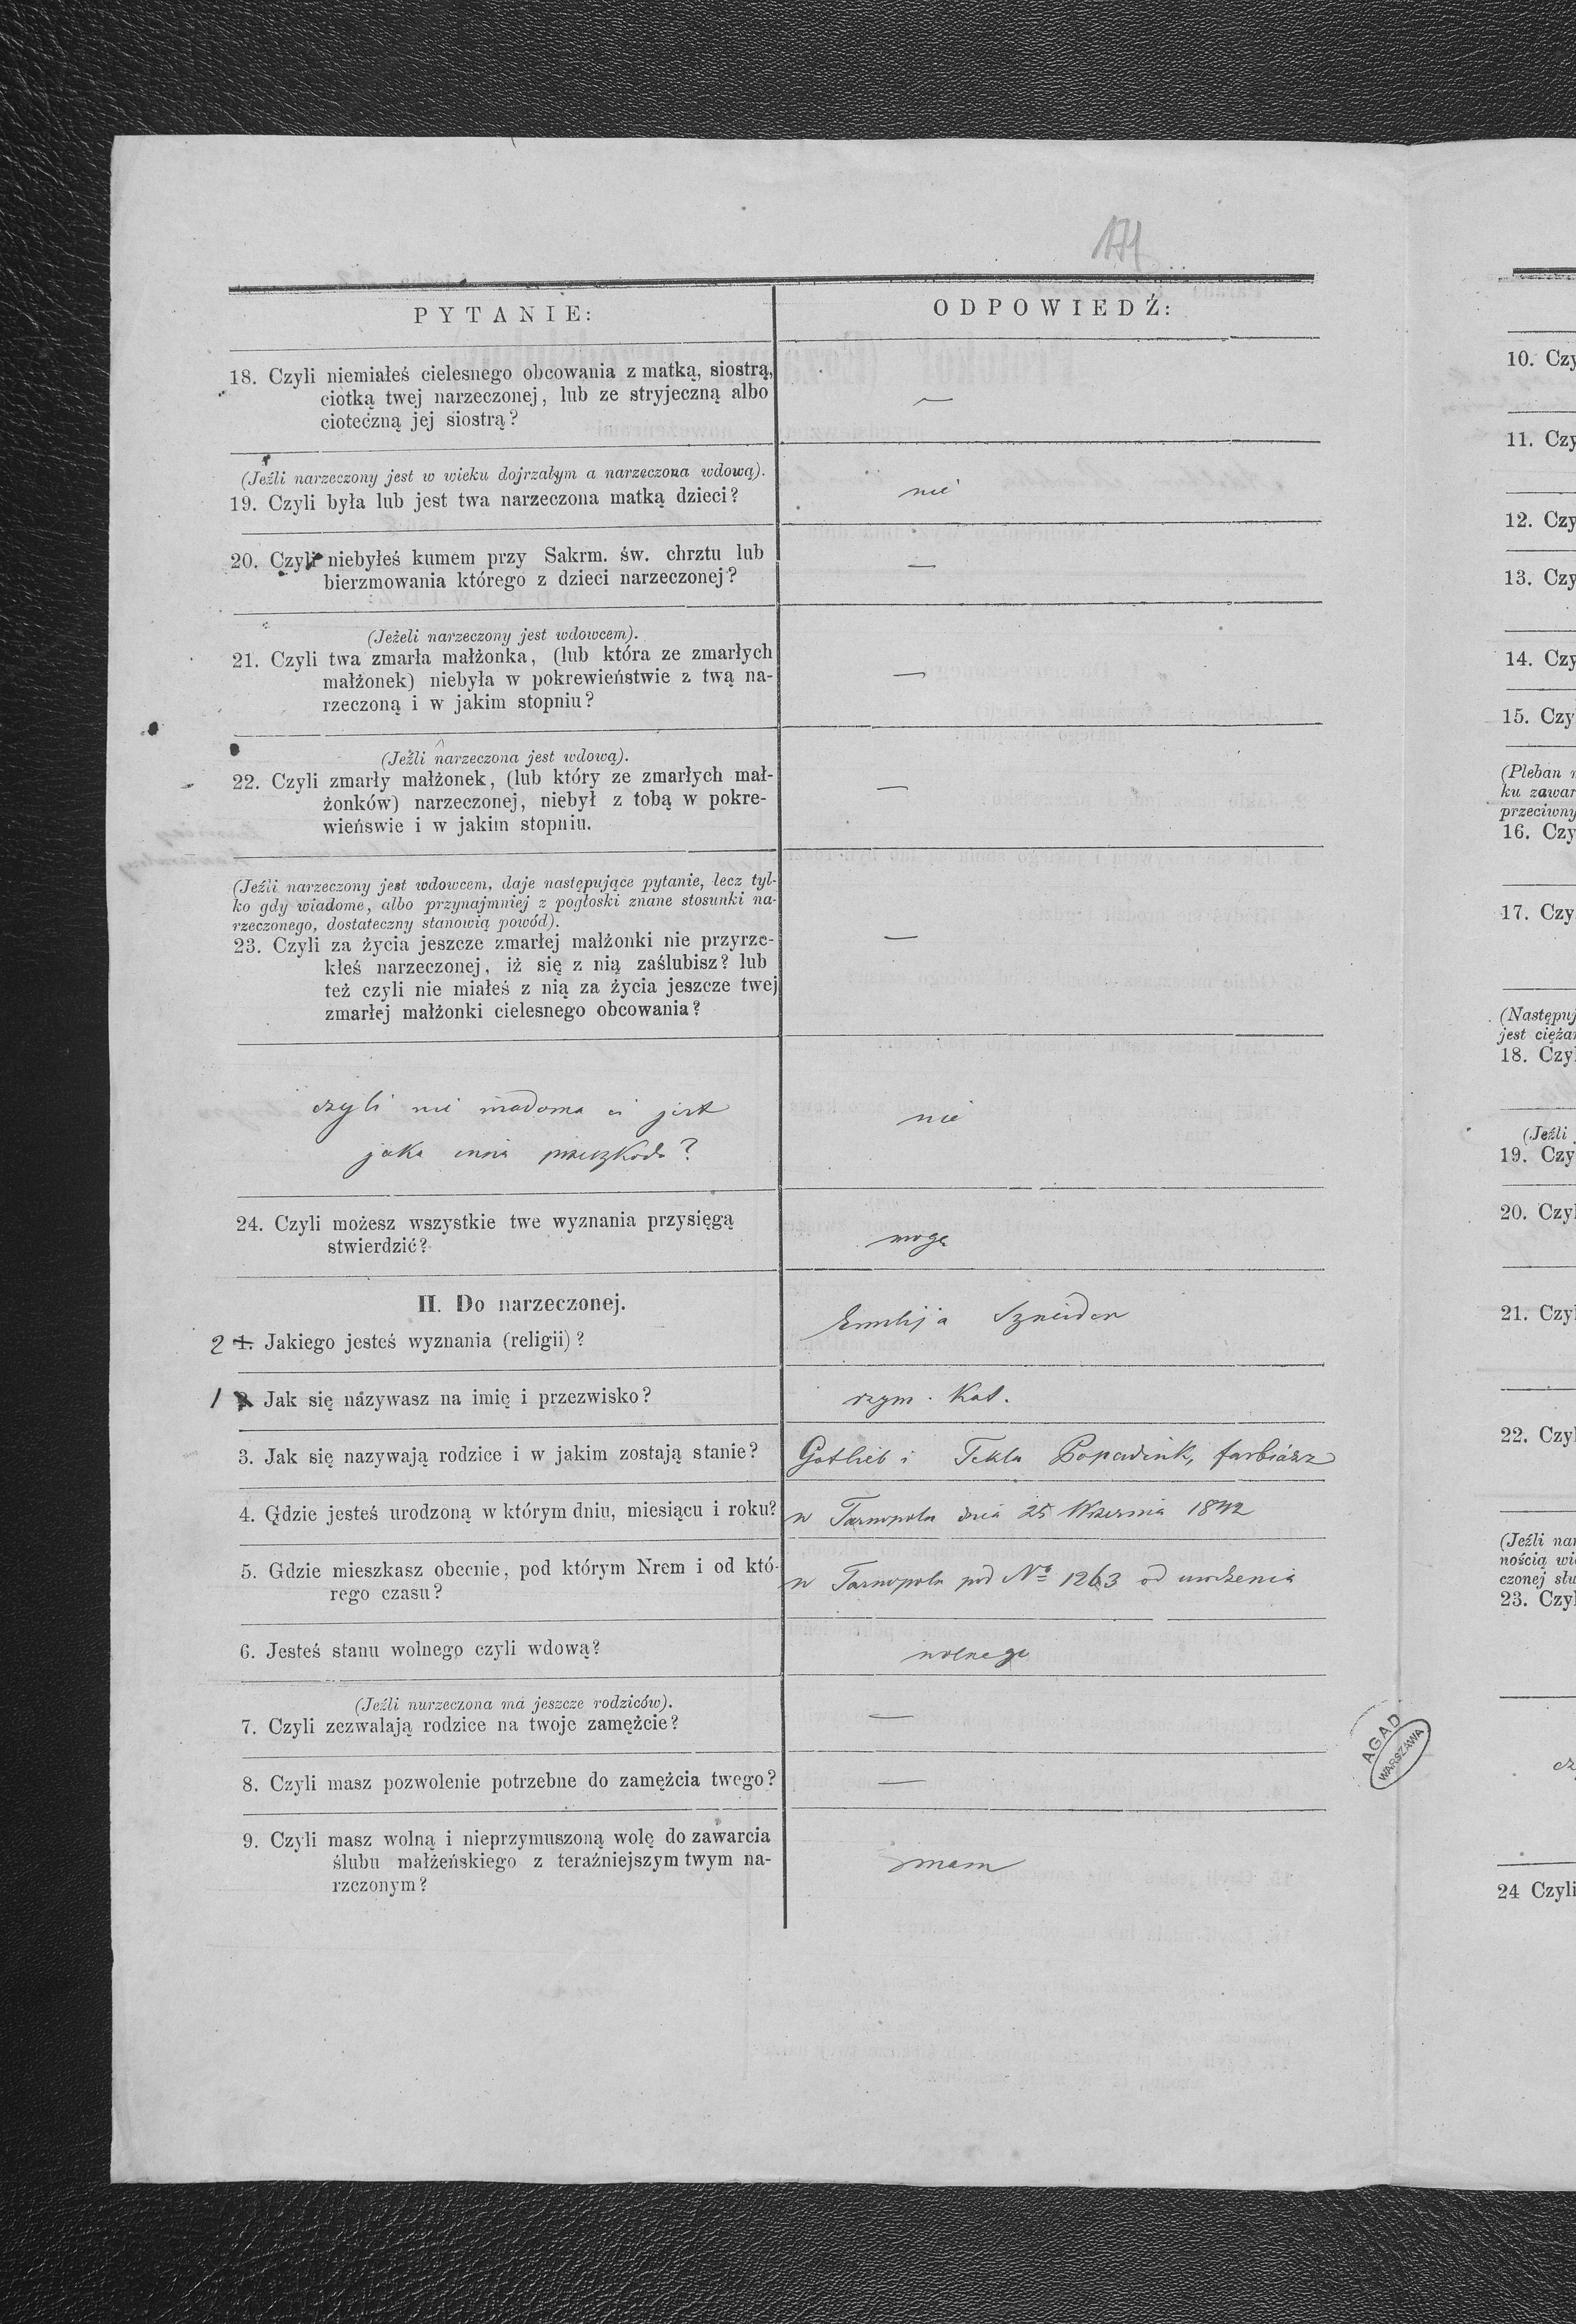 171
PYTANIE:
ODPOWIEDŹ:
18. Czyli niemiałeś cielesnego obcowania z matką, siostrą,
ciotką twej narzeczonej, lub ze stryjeczną albo
cioteczną jej siostrą?
—
(Jeźli narzeczony jest w wieku dojrzałym a narzeczona wdową).
19. Czyli była lub jest twa narzeczona matką dzieci?
nie
20. Czyli niebyłeś kumem przy Sakrm. św. chrztu lub
bierzmowania którego z dzieci narzeczonej?
—
(Jeżeli narzeczony jest wdowcem).
21. Czyli twa zmarła małżonka, (lub która ze zmarłych
małżonek) niebyła w pokrewieństwie z twą na-
rzeczoną i w jakim stopniu?
—
(Jeźli narzeczona jest wdową).
22. Czyli zmarły małżonek, (lub który ze zmarłych mał-
żonków) narzeczonej, niebył z tobą w pokre-
wieńswie i w jakim stopniu.
—
(Jeźli narzeczony jest wdowcem, daje następujące pytanie, lecz tyl-
ko gdy wiadome, albo przynajmniej z pogłoski znane stosunki na-
rzeczonego, dostateczny stanowią powód).
23. Czyli za życia jeszcze zmarłej małżonki nie przyrze-
kłeś narzeczonej, iż się z nią zaślubisz? lub
też czyli nie miałeś z nią za życia jeszcze twej
zmarłej małżonki cielesnego obcowania?
—
czyli nie wiadoma ci jest
jaka inna przeszkoda?
nie
24. Czyli możesz wszystkie twe wyznania przysięgą
stwierdzić?
mogę
II. Do narzeczonej.
Emilija Szneider
2 1. Jakiego jesteś wyznania (religii)?
1 2. Jak się názywasz na imię i przezwisko?
rzym. Kat.
3. Jak się nazywają rodzice i w jakim zostają stanie?
Gotlieb i Tekla Popadiuk, farbiarz
4. Gdzie jesteś urodzoną w którym dniu, miesiącu i roku?
w Tarnopolu dnia 25 Września 1842
5. Gdzie mieszkasz obecnie, pod którym Nrem i od któ-
rego czasu?
w Tarnopolu pod No 1263 od urodzenia
6. Jesteś stanu wolnego czyli wdową?
wolnego
(Jeźli nurzeczona ma jeszcze rodziców).
7. Czyli zezwalają rodzice na twoje zamężcie?
—
8. Czyli masz pozwolenie potrzebne do zamężcia twego?
—
9. Czyli masz wolną i nieprzymuszoną wolę do zawarcia
ślubu małżeńskiego z teraźniejszym twym na-
rzczonym?
mam
AGAD
WARSZAWA
10. Czy
11. Czy
12. Czy
13. Czy
14. Czy
15. Czy
(Pleban
ku zawar
przeciwny
16. Czy
17. Czy
(Następuj
jest cięża
18. Czy
(Jeźli
19. Czy
20. Czyl
21. Czyl
22. Czyl
(Jeźli nar
nością wi
czonej słu
23. Czyl
cz
24 Czyli